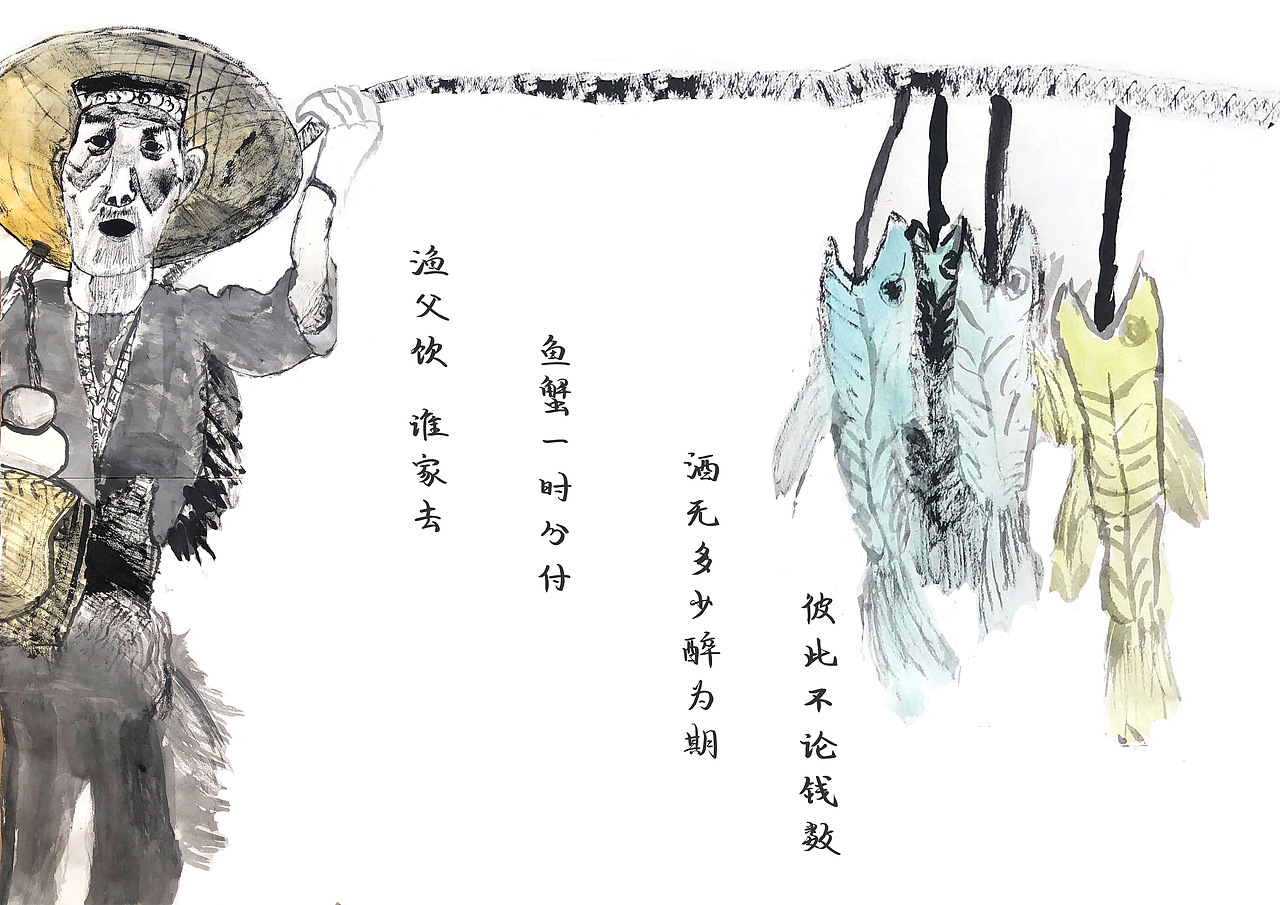 渔父饮 谁家去
鱼蟹一时分付
酒无多少醉为期
彼此不论钱数